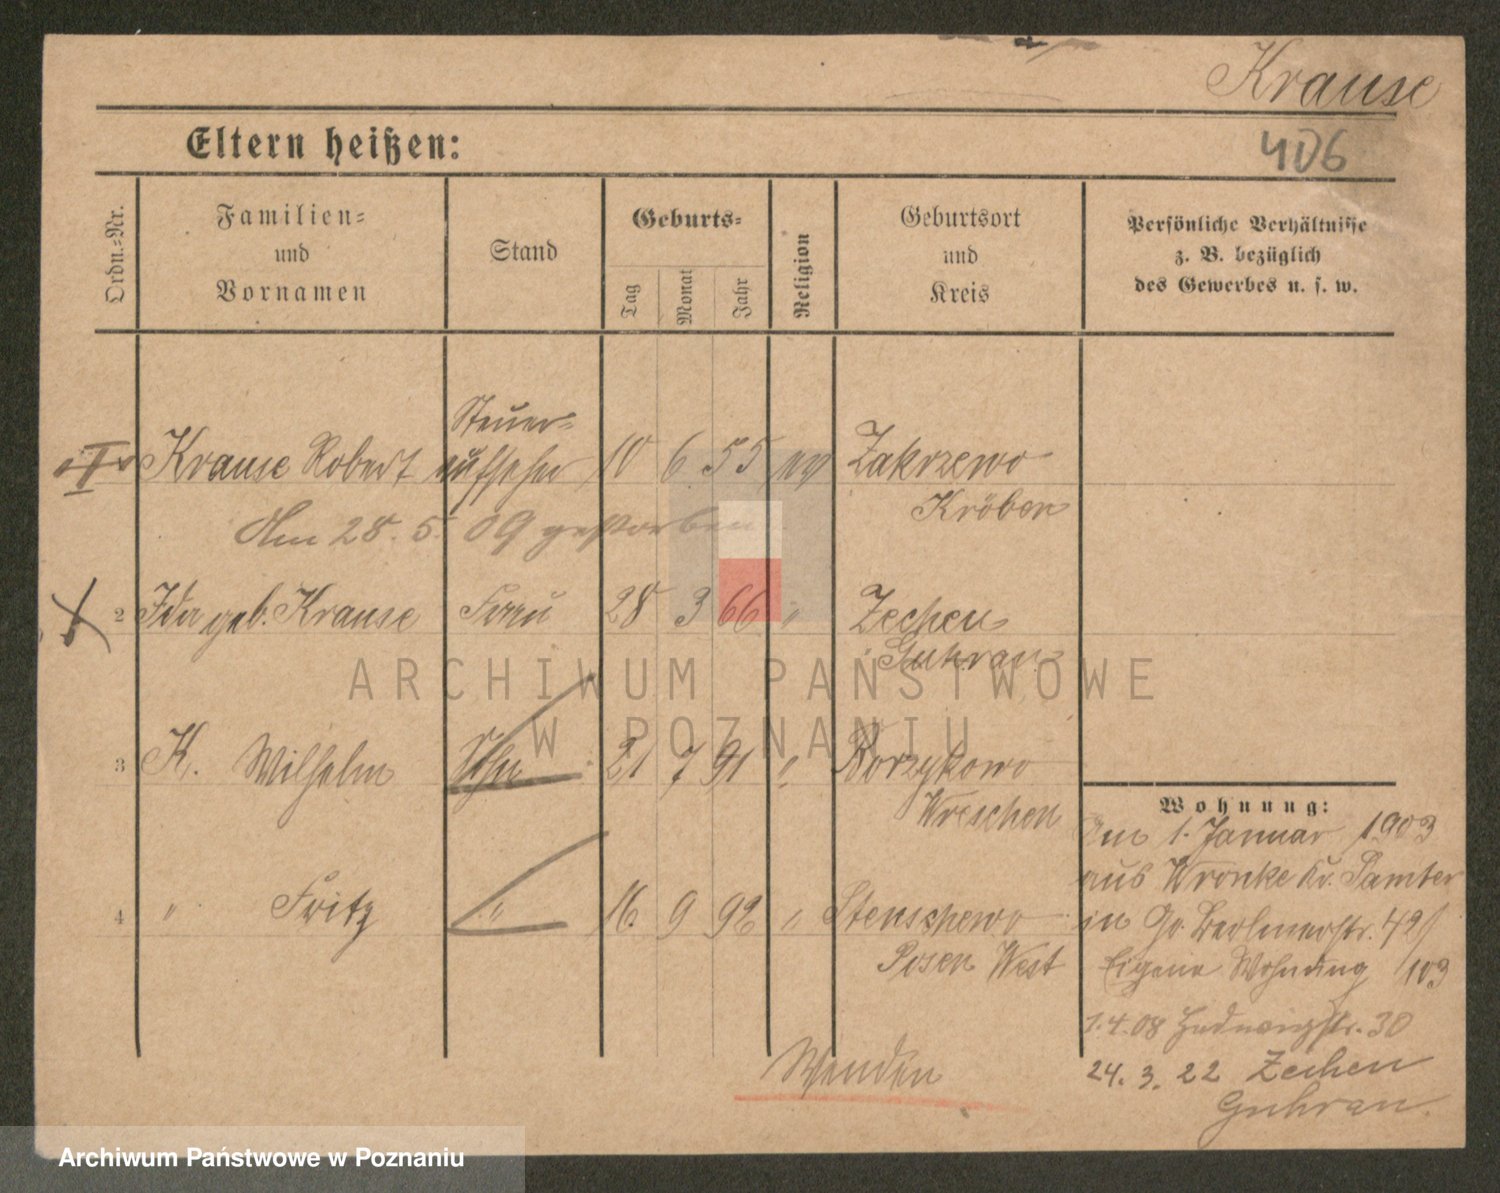 Krause
406
Eltern heißen:
Ordn.-Nr.
Familien-
und
Vornamen
Stand
Geburts-
Tag
Monat
Jahr
Religion
Geburtsort
und
Kreis
Persönliche Verhältnisse
z. B. bezüglich
des Gewerbes u. s. w.
Steuer-
I Krause Robert aufseher 10 6 55 ev Zakrzewo
Kröben
Am 28. 5. 09 gestorben
2 Ida geb. Krause Frau 28 3 66 " Zechen
Guhrau
ARCHIWUM PAŃSTWOWE
W POZNANIU
3 K. Wilhelm Sohn 21 7 91 " Borzykowo
Wreschen
4 " Fritz " 16. 9 92 " Stenschewo
Posen West
Wohnung:
Am 1. Januar 1903
aus Wronke Kr. Samter
in Gr. Berlinerstr. 42/
Eigene Wohnung /103
1.4.08 Hedwigstr. 30
24. 3. 22 Zechen
Guhrau.
Wenden
Archiwum Państwowe w Poznaniu